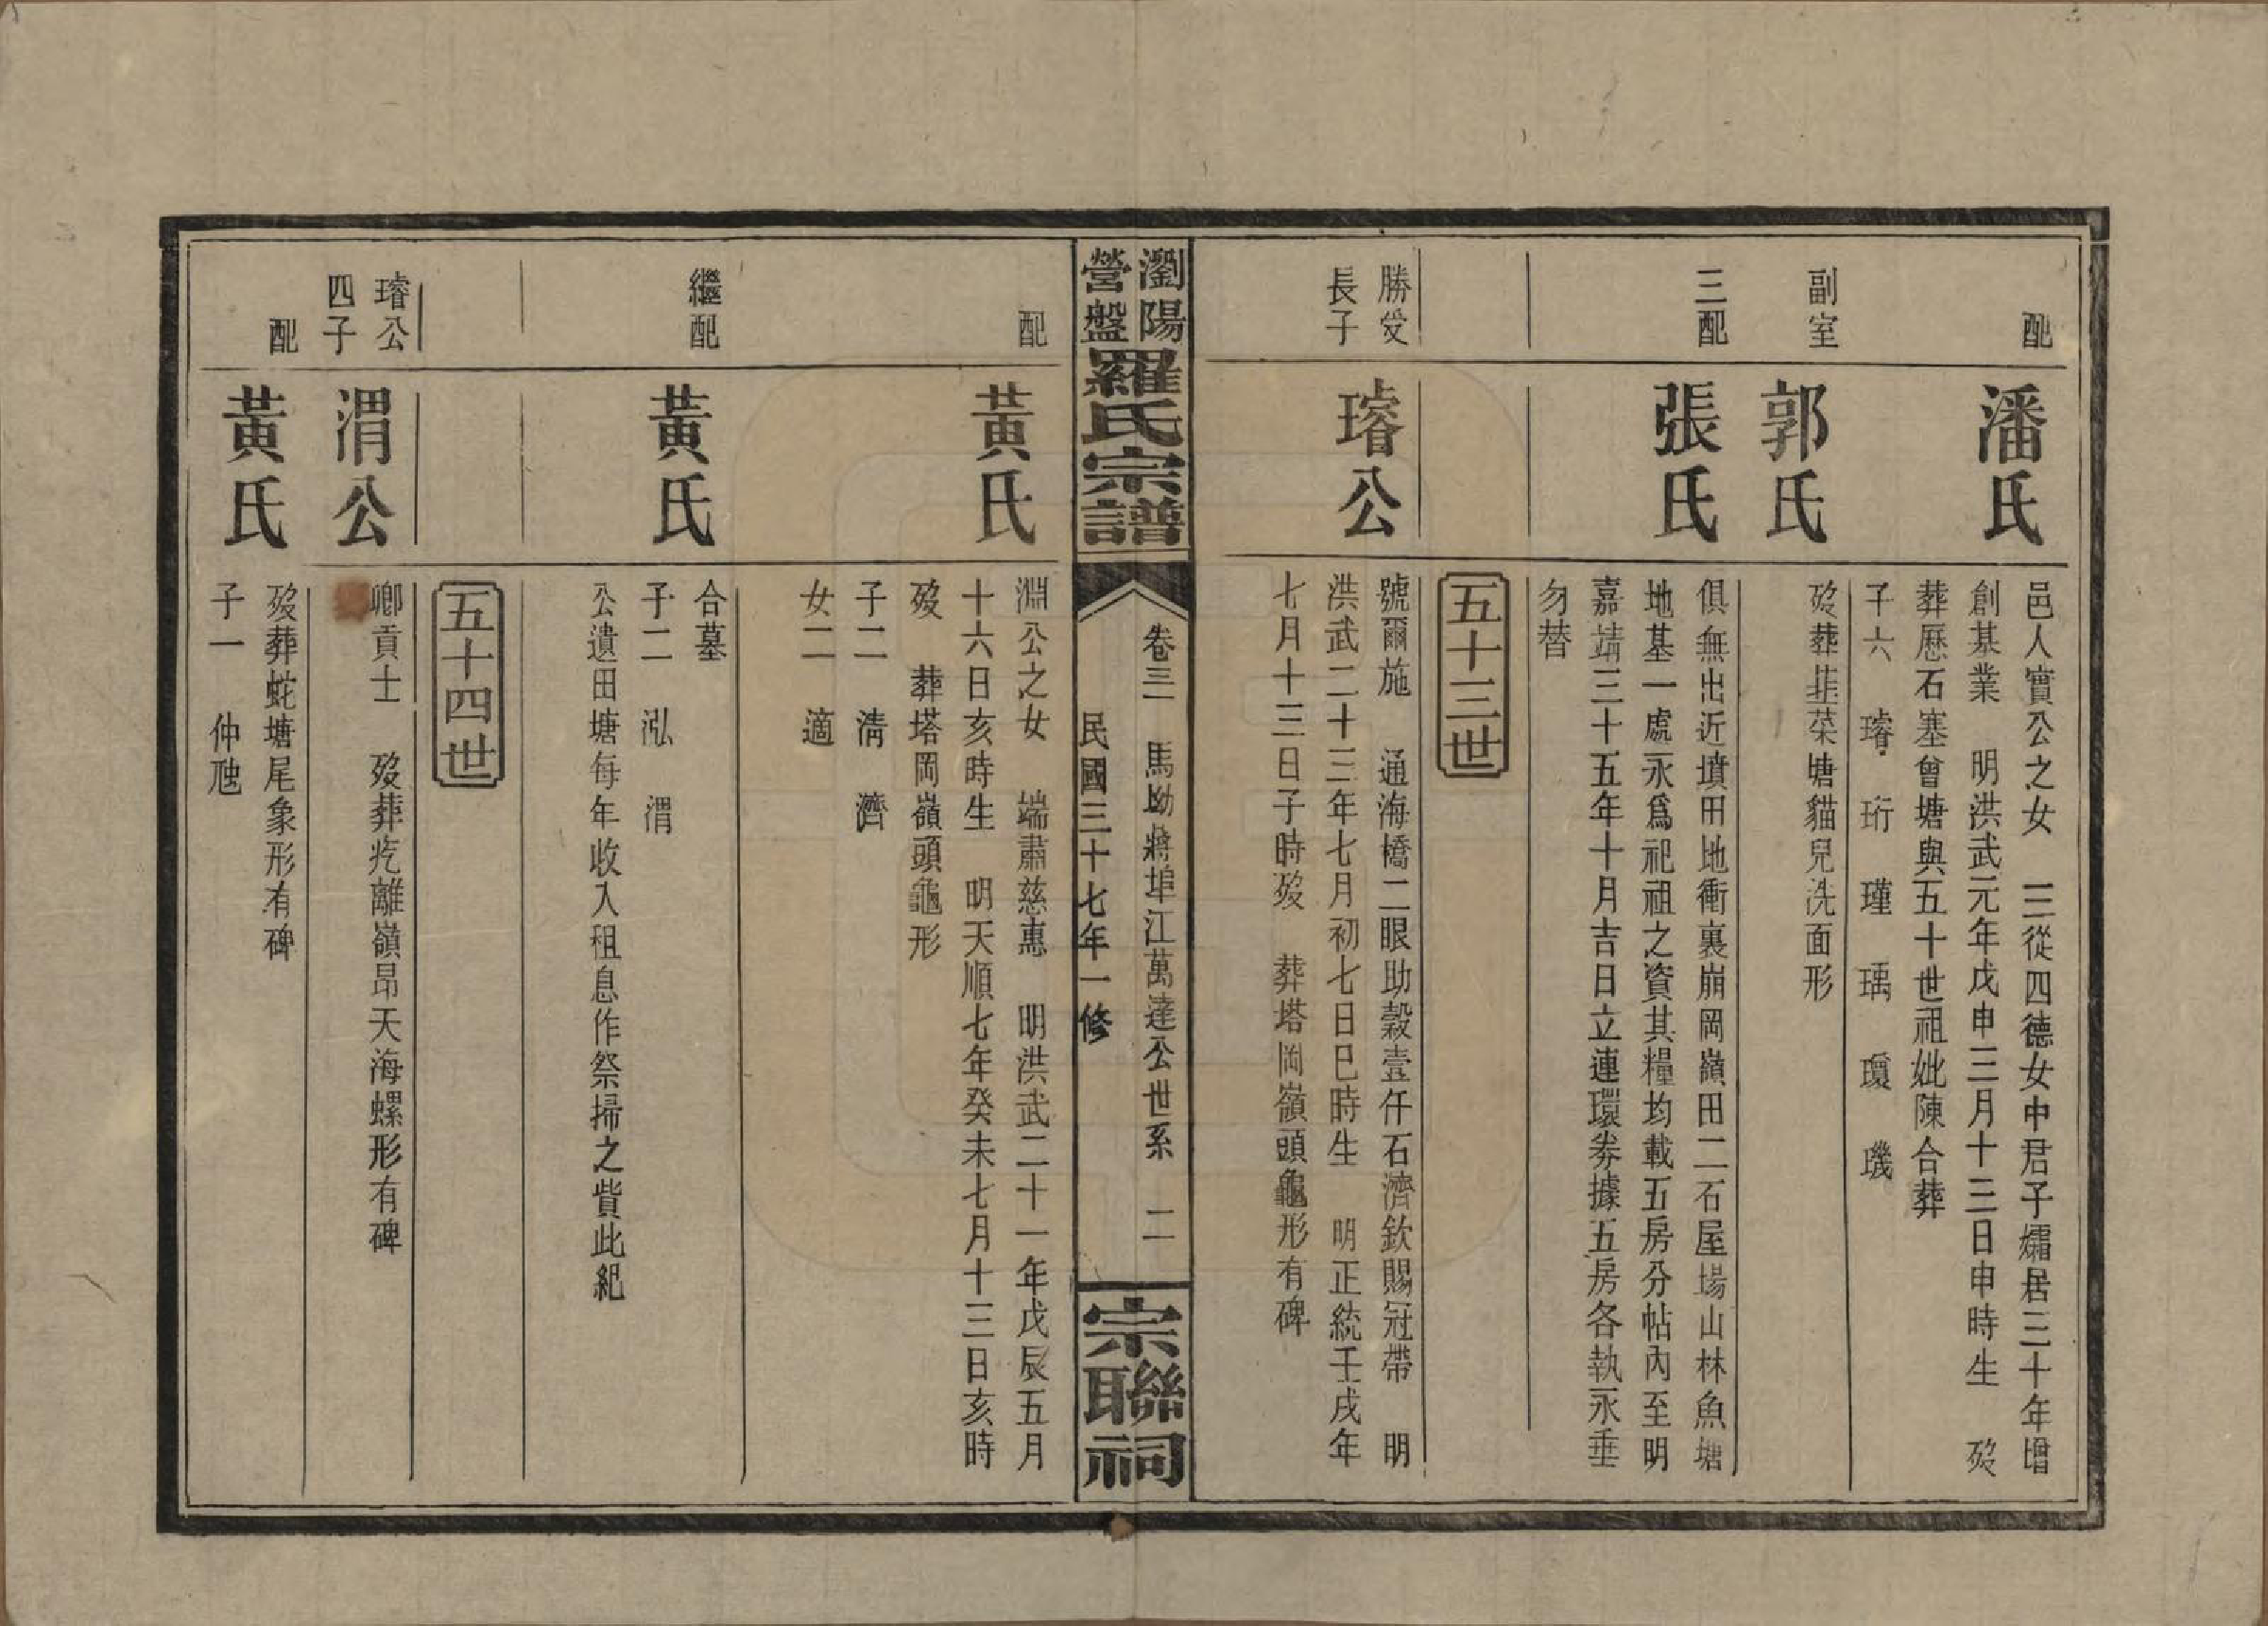 配
潘氏
邑人實公之女　三從四德女中君子孀居三十年增
創基業　明洪武元年戊申三月十三日申時生　歿
葬歷石塞曾塘與五十世祖妣陳合葬
子六　璿　珩　瑾　瑀　瓊　璣
副室
郭氏
歿葬韭菜塘貓兒洗面形
三配
張氏
俱無出近墳田地衝裏崩岡嶺田二石屋場山林魚塘
地基一處永爲祀祖之資其糧均載五房分帖內至明
嘉靖三十五年十月吉日立連環劵據五房各執永垂
勿替
五十三世
勝受
長子
璿公
號爾施　通海橋二眼助穀壹仟石濟欽賜冠帶　明
洪武二十三年七月初七日巳時生　明正統壬戌年
七月十三日子時歿　葬塔岡嶺頭龜形有碑
瀏陽
營盤
羅氏宗譜
卷三　馬坳蔣埠江萬達公世系　二
民國三十七年一修
宗聯祠
配
黃氏
淵公之女　端肅慈惠　明洪武二十一年戊辰五月
十六日亥時生　明天順七年癸未七月十三日亥時
歿　葬塔岡嶺頭龜形
子二　清　濟
女二　適
繼配
黃氏
合墓
子二　泓　渭
公遺田塘每年收入租息作祭掃之貲此紀
五十四世
璿公
四子
渭公
卿貢士　歿葬疙離嶺昂天海螺形有碑
配
黃氏
歿葬蛇塘尾象形有碑
子一　仲